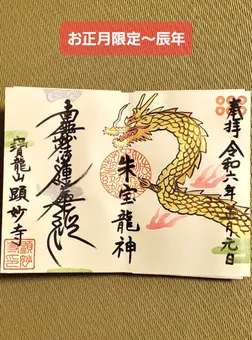 お正月限定〜辰年
奉拝
令和六年正月元日
朱宝龍神
南無妙法蓮華経
寶龍山 顕妙寺